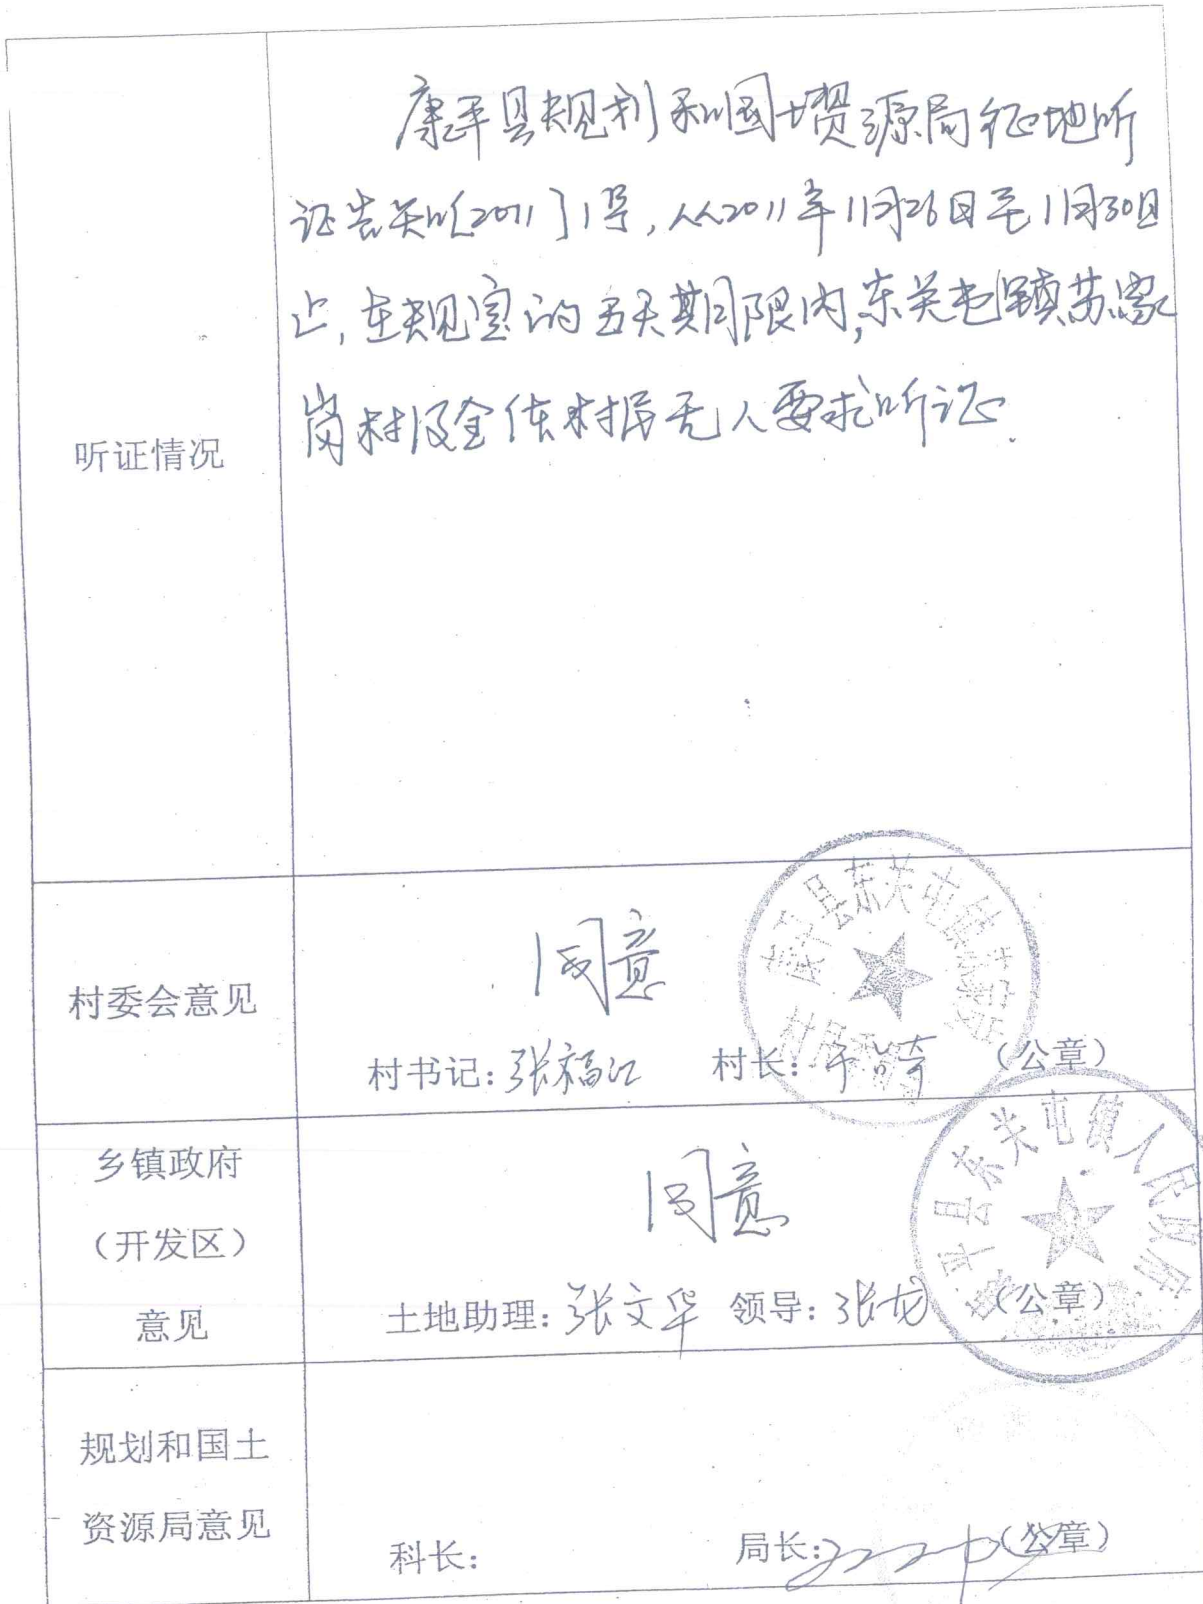 康平县规划和国土资源局征地听
证告知[2011]1号,从2011年11月26日至11月30日
止,在规定的五天期限内,东关屯镇苏家
岗村及全体村民无人要求听证.
听证情况
村委会意见
同意
村书记:张福江 村长: (公章)
康平县东关屯镇苏家岗
乡镇政府
(开发区)
意见
同意
土地助理:张文华 领导:张龙 (公章)
康平县东关屯镇人民政府
规划和国土
资源局意见
科长: 局长: (公章)